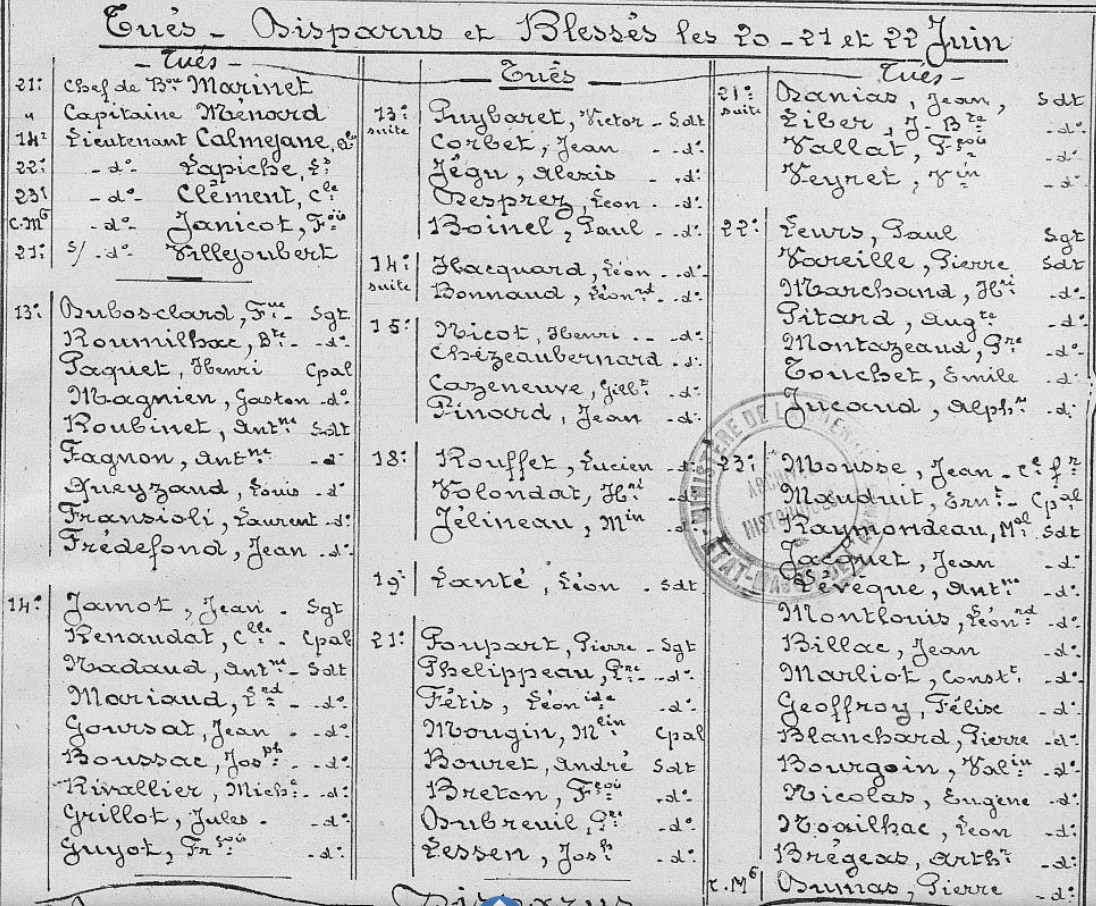 Tués - Disparus et Blessés les 20 - 21 et 22 Juin
- Tués -
21e Chef de Bon Marinet
" Capitaine Ménard
14e Lieutenant Calmejane,
22e -do- Lapiche, Ls
23e -do- Clément, Cle
C.MG -do- Janicot, Fois
21e S/ -do- Villejoubert
13e Dubosclard, Fue Sgt
Roumilhac, Bte -do-
Paquet, Henri Cpal
Magnien, Gaston do
Roubinet, Antne Sdt
Fagnon, Antne -do
Queyzaud, Louis -do
Fransioli, Laurent -do
Frédefond, Jean -do
14e Jamot, Jean - Sgt
Renaudat, Clle - Cpal
Nadaud, Antne - Sdt
Mariaud, Lrd -do
Goursat, Jean -do
Boussac, Josph -do
Rivallier, Michl -do
Grillot, Jules -do
Guyot, Frçois -do
Tués
13e suite Puybaret, Victor - Sdt
Corbet, Jean -do
Jégu, Alexis -do
Desprez, Léon -do
Boinel, Paul -do
14e suite Hacquard, Léon -do
Bonnaud, Léonrd -do
15e Nicot, Henri -do
Chézeaubernard -do
Cazeneuve, Gilbt -do
Pinard, Jean -do
18e Rouffet, Lucien -do
Volondat, Hri -do
Jélineau, Min -do
19e Lanté, Léon - Sdt
21e Poupart, Pierre - Sgt
Phelippeau, Pre -do
Fétis, Léonide -do
Mougin, Mlin Cpal
Bouret, André Sdt
Breton, Fçois -do
Dubreuil, Pre -do
Lessen, Josh -do
Tués -
21e suite Danias, Jean, Sdt
Liber, J-Bte -do
Vallat, Fçois -do
Veyret, Vin -do
22e Leurs, Paul Sgt
Vareille, Pierre Sdt
Marchand, Hri -do
Pitard, Augte -do
Montazeaud, Pre -do
Touchet, Emile -do
Jucaud, Alphe -do
23e Mousse, Jean - Cal fr
Mauduit, Ernt - Cpal
Raymondeau, Mal Sdt
Jacquet, Jean -do
Lévêque, Antne -do
Montlouis, Léonrd -do
Billac, Jean -do
Marliot, Constt -do
Geoffroy, Félise -do
Blanchard, Pierre -do
Bourgoin, Valin -do
Nicolas, Eugène -do
Noailhac, Léon -do
Brégeas, Arthr -do
C.MG Dumas, Pierre -do
MINISTÈRE DE LA GUERRE
ARCHIVES
HISTORIQUES
ÉTAT-MAJOR